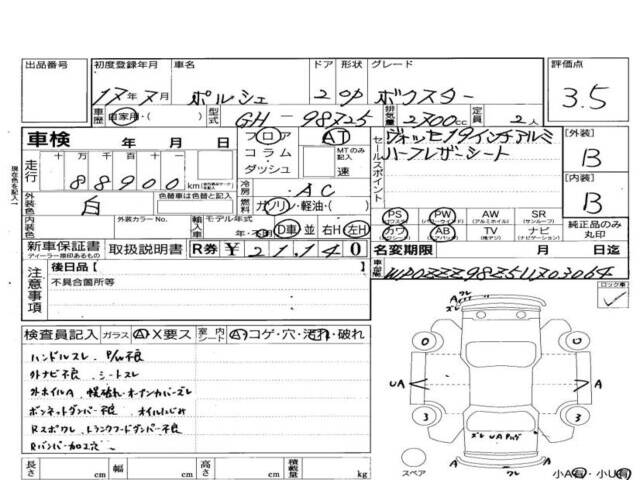 出品番号 初度登録年月 車名 ドア 形状 グレード 評価点
17年7月 ポルシェ 2 OP ボクスター 3.5
車歴 自家用・( ) 型式 GH-98725 排気量 2700cc 定員 2人
車検 年 月 日 フロア AT
走行 十 万 千 百 十 一 コラム・ダッシュ MTのみ記入 速
88900 km
セールスポイント
ヴォッセ19インチアルミ
ハーフレザーシート
[外装] B
[内装] B
外装色 白 色替車は色替と記入 冷房 AC
燃料 ガソリン・軽油・( )
内装色 外装カラーNo. 輸入車 モデル年式 年・不明 D車 並 右H 左H
PS PW AW SR
(パワステ) (パワーウインド) (アルミホイル) (サンルーフ)
カワ AB TV ナビ
(エアバッグ) (ナビゲーション)
純正品のみ丸印
新車保証書 取扱説明書 R券 ¥ 21,140
ディーラー捺印あるもの
名変期限 月 日迄
車台No. WP0ZZZ98Z5U703064
現在色を記入
注意事項 後日品[ ]
不具合箇所等
ロック車
検査員記入 ガラス A・X要ス 室内 シート A・コゲ・穴・汚れ・破れ
ハンドルスレ、P/W不良
外ナビ不良、シートスレ
外ホイルA、幌破れ・オープンカバーズレ
ボンネットダンパー不良 オイルにじみ
Rスポワレ、トランクフードダンパー不良
Rバンパー加工穴
ワレ
A
ズレ
0 0
UA A
3 3
ズレ UA
A A
ワレ
スペア
小A有・小U有
長さ cm 幅 cm 高さ cm 積載量 kg